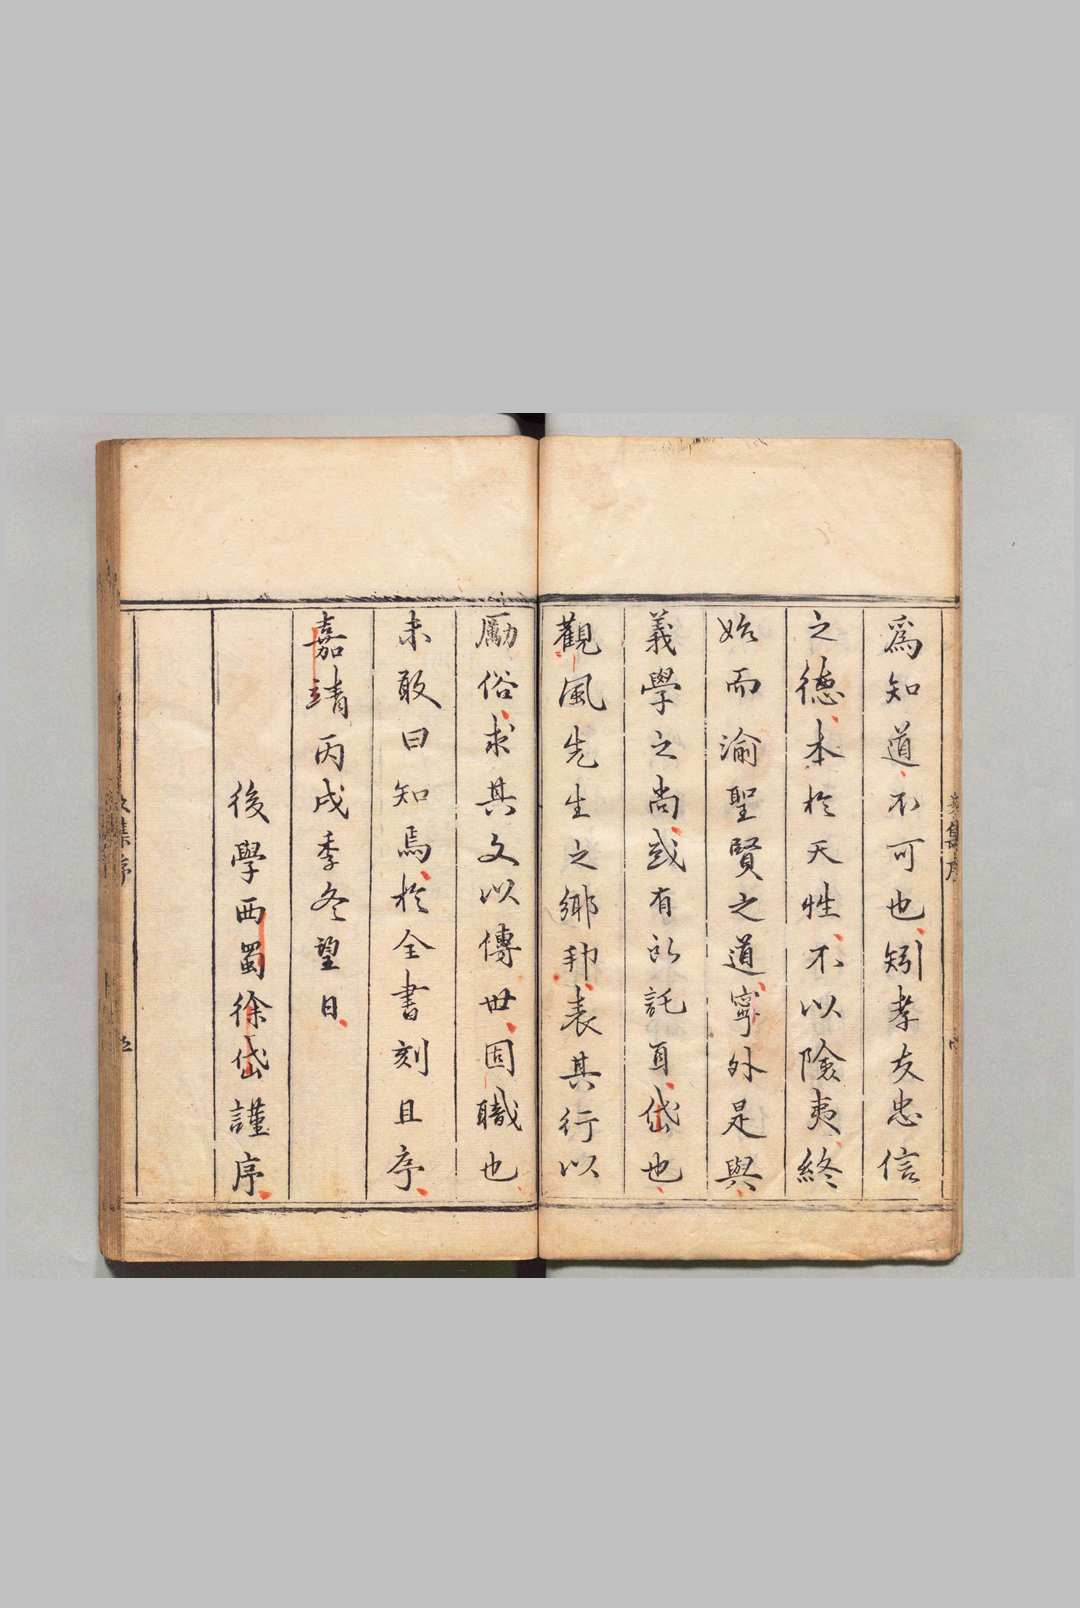 爲知道不可也矧孝友忠信
之德本於天性不以險夷終
始而渝聖賢之道寧外是與
義學之尚或有所託耳岱也
觀風先生之鄉邦表其行以
勵俗求其文以傳世固職也
未敢曰知焉於全書刻且序
嘉靖丙戌季冬望日
後學西蜀徐岱謹序
集序